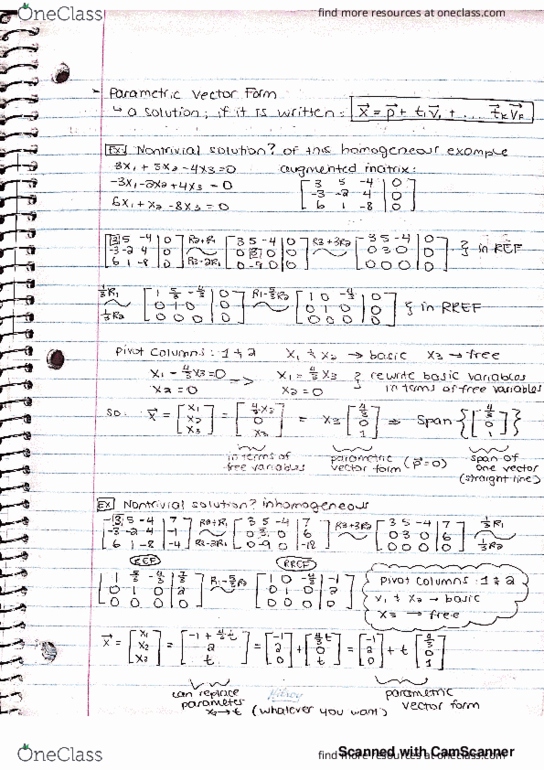 OneClass
find more resources at oneclass.com
Parametric Vector Form
↳ a solution; if it is written: x⃗ = p⃗ + t₁v⃗₁ + ... t⃗ₖv⃗ₖ
Ex Nontrivial solution? of this homogeneous example
3x₁ + 5x₂ - 4x₃ = 0 augmented matrix:
-3x₁ - 2x₂ + 4x₃ = 0
6x₁ + x₂ - 8x₃ = 0
[3 5 -4 | 0
-3 -2 4 | 0
6 1 -8 | 0]
[3 5 -4 | 0
-3 -2 4 | 0
6 1 -8 | 0]
R2+R1
R3-2R1
[3 5 -4 | 0
0 3 0 | 0
0 -9 0 | 0]
R3+3R2
[3 5 -4 | 0
0 3 0 | 0
0 0 0 | 0]
} in REF
⅓R1
⅓R2
[1 5/3 -4/3 | 0
0 1 0 | 0
0 0 0 | 0]
R1-5/3R2
[1 0 -4/3 | 0
0 1 0 | 0
0 0 0 | 0]
} in RREF
Pivot columns: 1 & 2 x₁ & x₂ → basic x₃ → free
x₁ - 4/3x₃ = 0 -> x₁ = 4/3x₃ } rewrite basic variables
x₂ = 0 x₂ = 0 in terms of free variables
so: x⃗ = [x₁ x₂ x₃] = [4/3x₃ 0 x₃] = x₃ [4/3 0 1] ⇒ Span {[4/3 0 1]}
in terms of free variables
parametric vector form (p⃗=0)
span of one vector (straight line)
Ex Nontrivial solution? inhomogeneous
[3 5 -4 | 7
-3 -2 4 | -1
6 1 -8 | -4]
R2+R1
R3-2R1
[3 5 -4 | 7
0 3 0 | 6
0 -9 0 | -18]
R3+3R2
[3 5 -4 | 7
0 3 0 | 6
0 0 0 | 0]
⅓R1
⅓R2
REF
RREF
[1 5/3 -4/3 | 7/3
0 1 0 | 2
0 0 0 | 0]
R1-5/3R2
[1 0 -4/3 | -1
0 1 0 | 2
0 0 0 | 0]
Pivot columns 1 & 2
x₁ & x₂ → basic
x₃ → free
x⃗ = [x₁ x₂ x₃] = [-1 + 4/3t 2 t] = [-1 2 0] + [4/3t 0 t] = [-1 2 0] + t [4/3 0 1]
can replace parameter
x₃→t (whatever you want)
parametric vector form
OneClass
find more resources at oneclass.com
Scanned with CamScanner